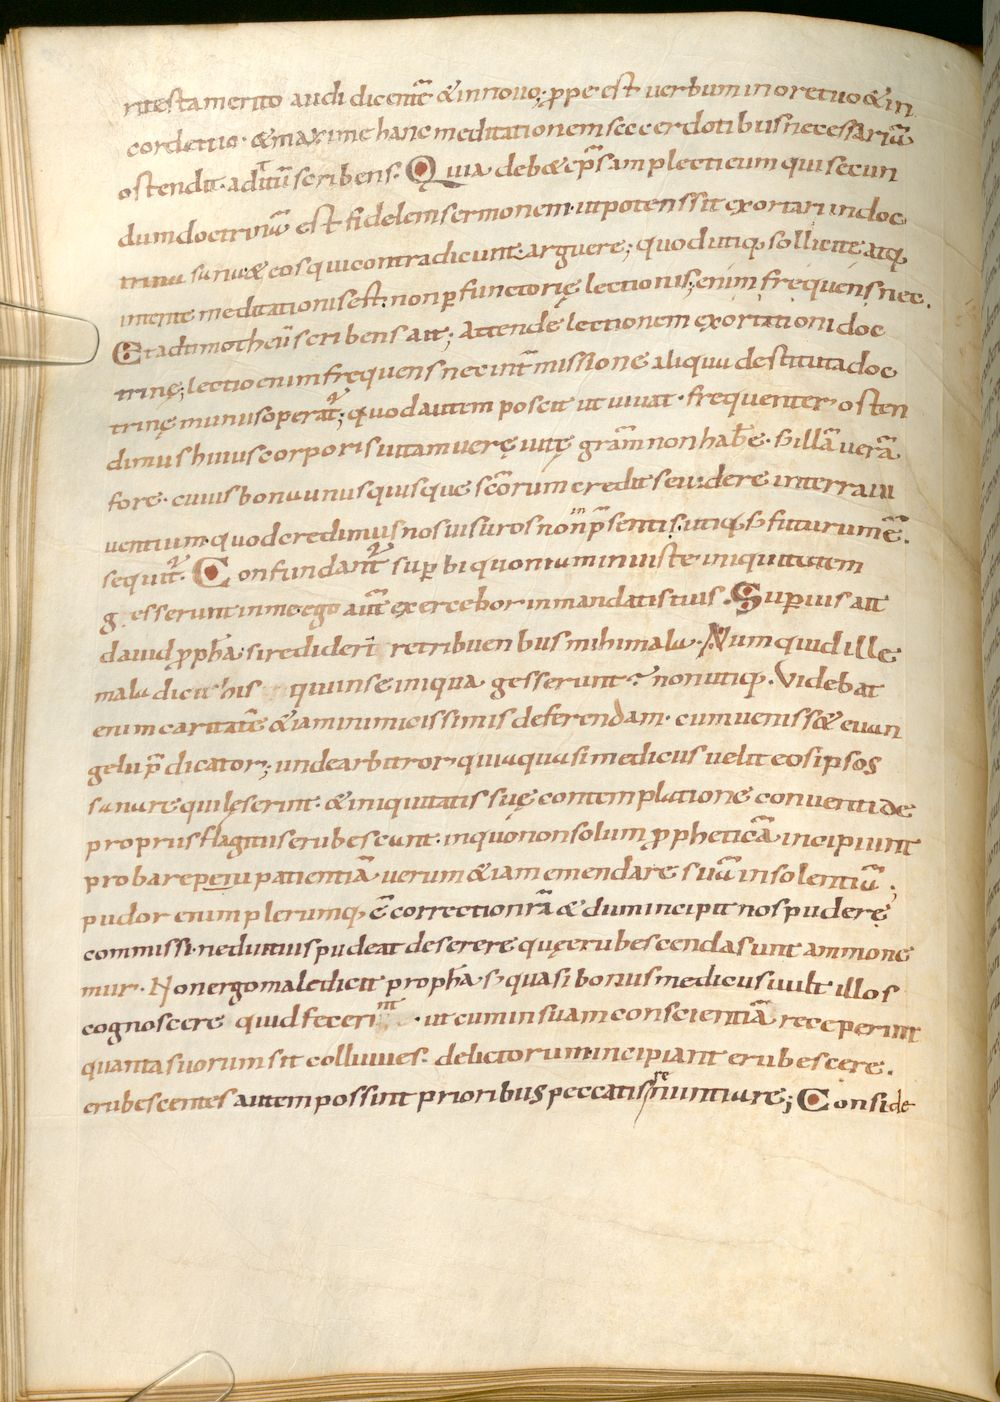 ritestamento audi dicentē & in novo; ꝓpe est verbum in ore tuo & in
corde tuo · & maxime hanc meditationem saecerdotibus necessariū
ostendit · ad titū scribens. Quia deb& ep̄s amplecti eum qui secun
dum doctrinā est fidelem sermonem · ut potens sit exortari in doc
trina sana & eos qui contradicunt · arguere; quod utiq, sollicite atq,
intente meditationis est · non ꝑfunctorię lectionis; enim frequens nec.
Et ad timotheū scribens ait; Attende lectionem exortationi doc
trinę; lectio enim frequens nec intͫmissione aliqua destituta doc
trinę munus operat̄; quod autem poscit ut vivat · frequenter osten
dimus huius corporis vitam verę vitę gratiam non habere · s; illā verā
fore · cuius bona unusquisque sc̄orum credit se videre in terra vi
ventium · quod credimus nos visuros non in p̄senti sit utiq, s; futurum ē.
sequit̄. Confundant̄ suꝑbi quoniam iniuste iniquitatem
gesserunt in me ego aut̄ exercebor in mandatis tuis. Suꝑius ait
david ꝓpha · si reddiderī retribuentibus mihi mala · Numquid ille
mala dicit his qui in se iniqua gesserunt? non utiq,. Videbat
enim caritatē & iam inimicissimis deferendam · cum veniss& evan
gelii p̄dicator; unde arbitror quia quasi medicus velit eos ipsos
sanare qui lęserint · & iniquitatis suę contemplatione conventi de
propriis flagitiis erubescant · in quo non solum ꝓpheticā incipiunt
probare patientiā verum & iam emendare suā insolentiā;
pudor enim plerumq, ē correctio nr̄a & dum incipit nos puderę
commissi · ne diutius pudeat deserere quę erubescenda sunt ammone
mur · Non ergo maledicit propha s; quasi bonus medicus vult illos
cognoscere quid fecerint · ut cum in suam conscientiā receperint
quanta suorum sit colluvies · delictorum incipiant erubescere.
erubescentes autem possint prioribus peccatis renuntiare; Conside